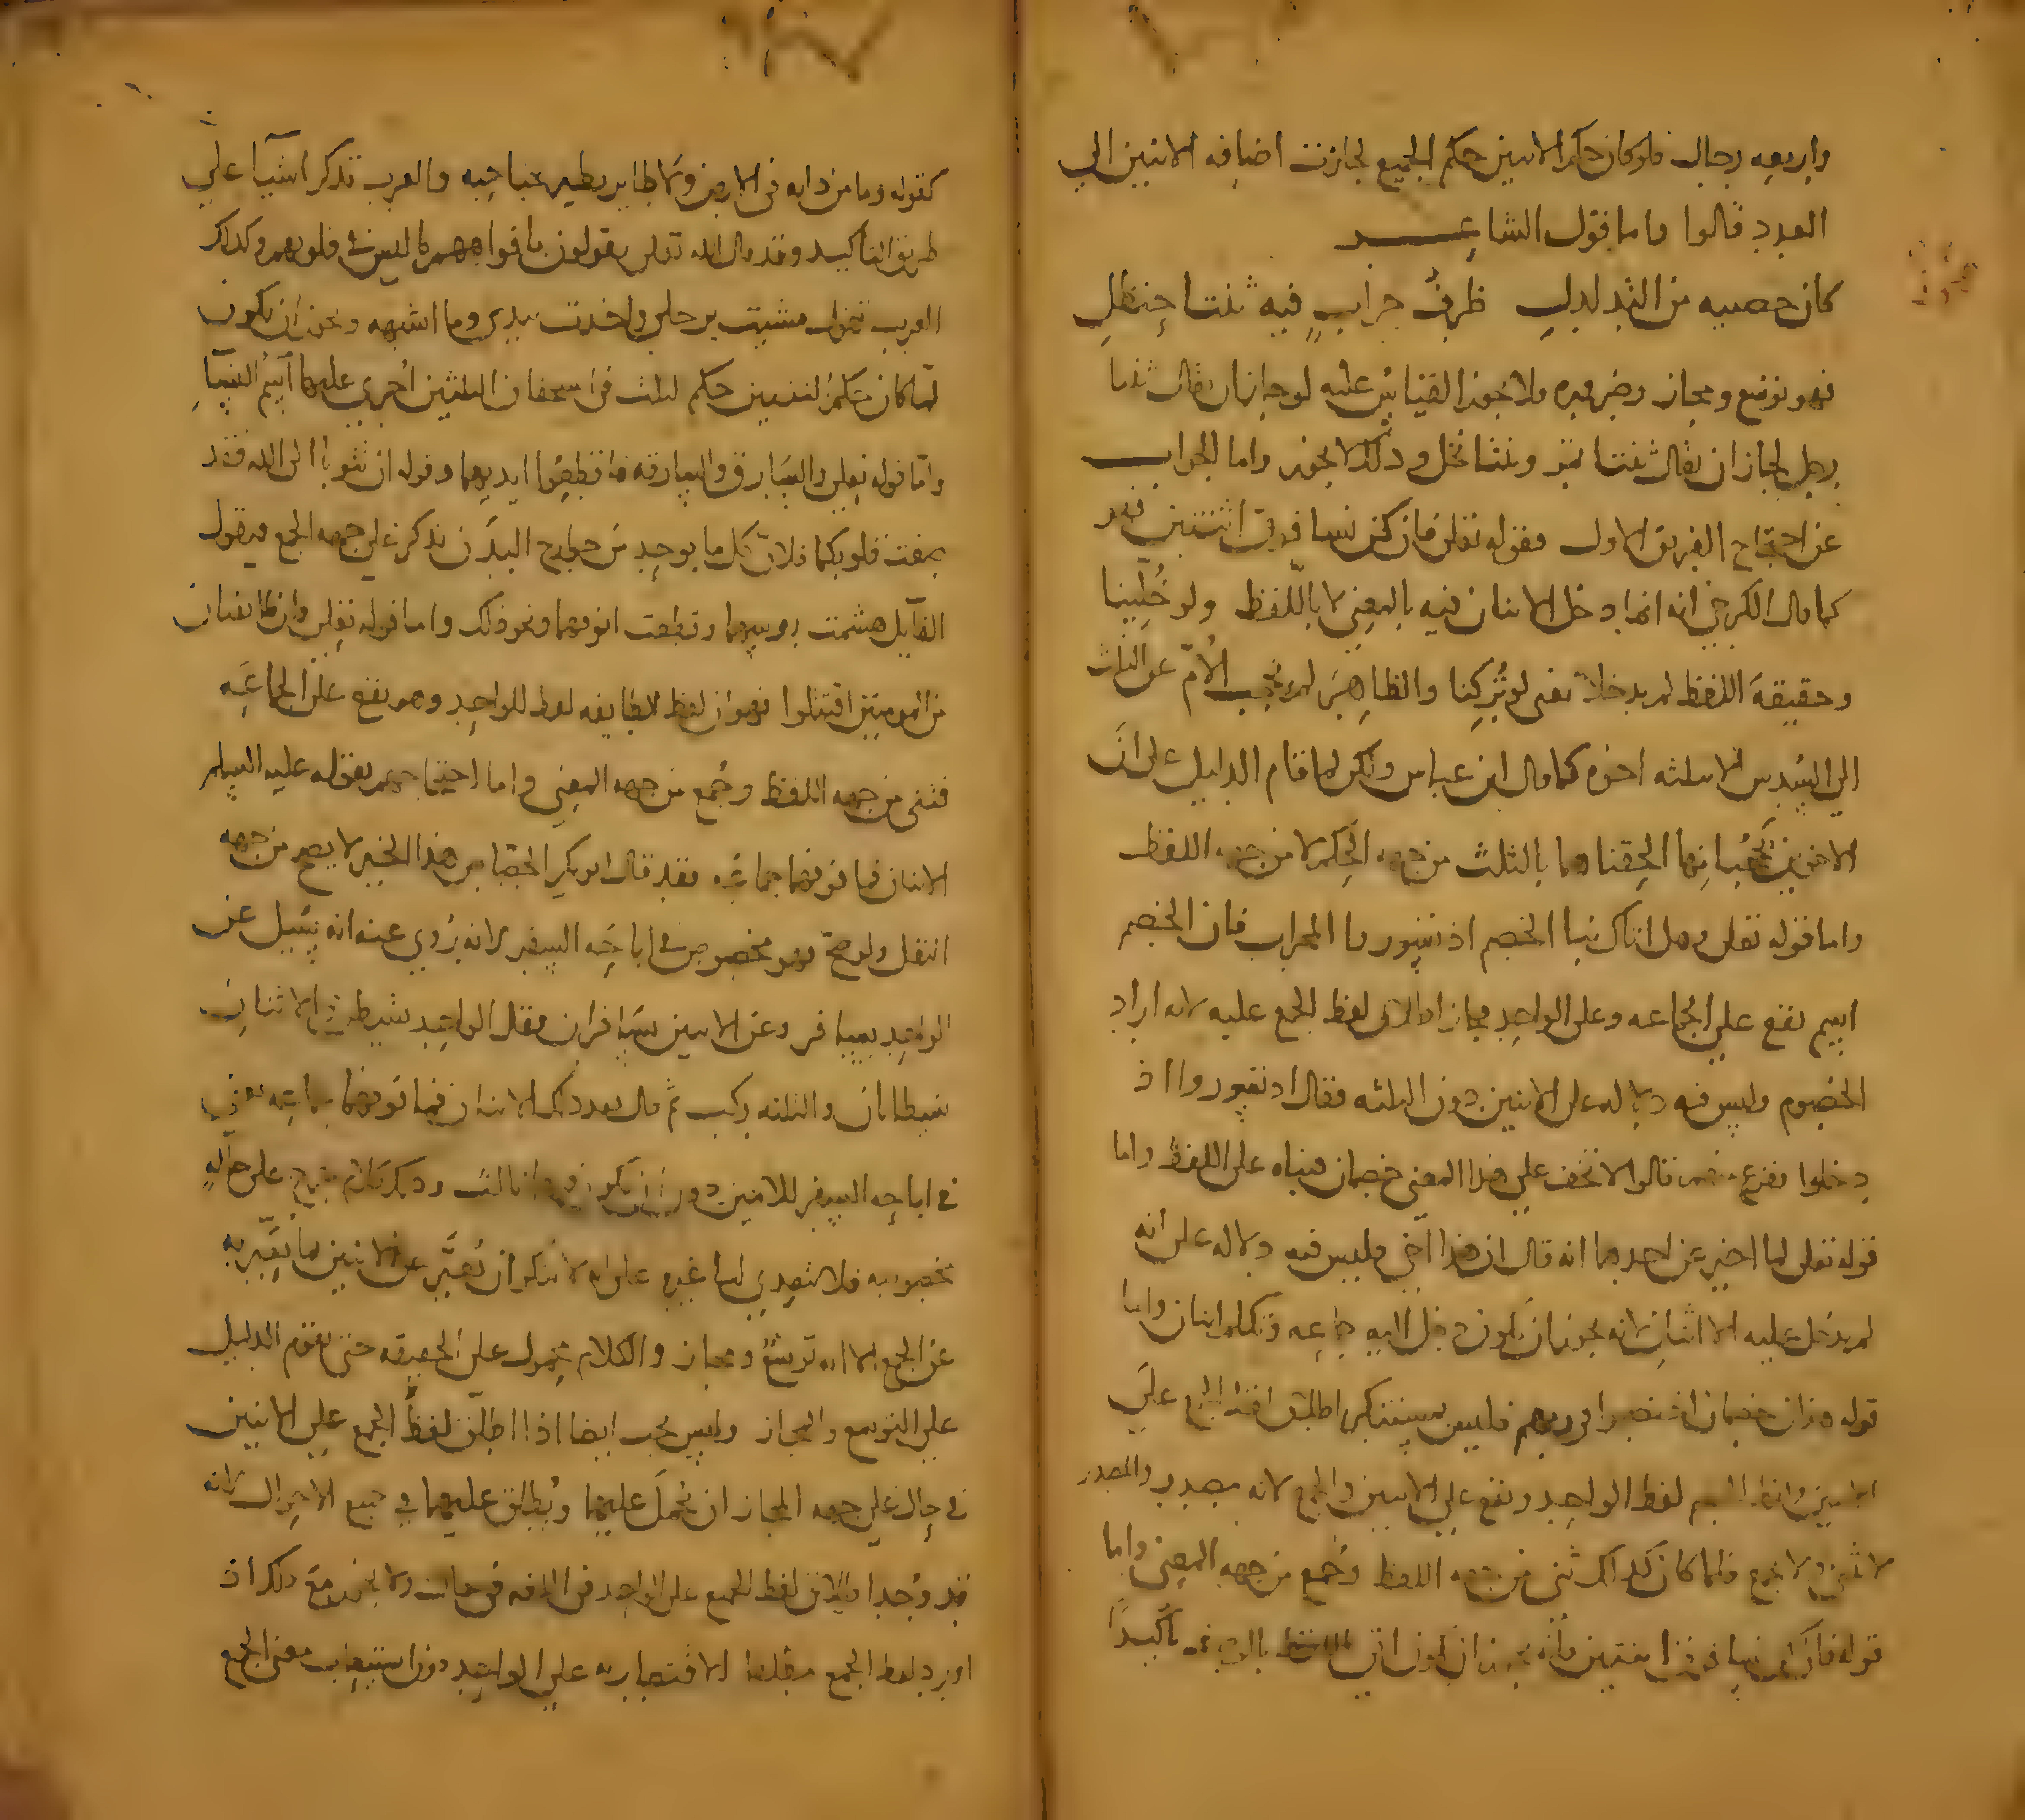 واربعه رجال فلو كان حكم الاثنين حكم الجميع لجازت اضافه الاثنين الي
العدد قالوا واما قول الشاعر
كان خصييه من التدلدل ظرف جراب فيه ثنتا حنظل
فهو توسع ومجاز وضروره ولا يجوز القياس عليه لو جاز ان يقال ثنتا
رجل لجاز ان يقال ثنتا تمر وثنتا نخل وذلك لا يجوز واما الجواب
عن احتجاج الفريق الاول فقوله تعلى فان كن نسا فوق اثنتين فهو
كما قال الكرخي انه انما دخل الاثنان فيه بالمعنى لا باللفظ ولو خلينا
وحقيقة اللفظ لم يدخلا يعنى لو تركنا والظاهر لم تحجب الام عن الثلث
الي السدس الا بثلثه اخوه كما قال ابن عباس ولكن لما قام الدليل على ان
الاخوين يحجبانها الحقناهما بالثلث من جهه الحكم لا من جهه اللفظ
واما قوله تعلى وهل اتاك نبا الخصم اذ تسوروا المحراب فان الخصم
اسم يقع على الجماعه وعلى الواحد فجاز اطلاق لفظ الجمع عليه لانه اراد
الخصوم وليس فيه دلاله على الاثنين دون الثلثه فقال اذ تسوروا اذ
دخلوا ففزع منهم قالوا لا تخف على هذا المعنى خصمان فبناه على اللفظ واما
قوله تعلى لما اخبر عن احدهما انه قال ان هذا اخي فليس فيه دلاله على انه
لم يدخل عليه الا اثنان لانه يجوز ان يكون دخل اليه جماعه وتكلم اثنان واما
قوله هذان خصمان اختصموا في ربهم فليس بمستنكر اطلاق لفظ الجمع على
الاثنين ولفظ الخصم لفظ الواحد ويقع على الاثنين والجمع لانه مصدر والمصدر
لا يثنى ولا يجمع فلما كان كذلك ثنى من جهه اللفظ وجمع من جهه المعنى واما
قوله فان كن نسا فوق اثنتين فانه يجوز ان يكون اتى باللفظ تاكيدا
كقوله وما من دابه فى الارض ولا طاير يطير بجناحيه والعرب تذكر اشيا على
طريق التاكيد وقد قال الله تعلى يقولون بافواههم ما ليس فى قلوبهم وكذلك
العرب تقول مشيت برجلي واخذت بيدي وما اشبهه ويجوز ان يكون
لما كان حكم البنتين حكم الثلث فى استحقاق الثلثين اجري عليهما اسم النسا
واما قوله تعلى والسارق والسارقه فاقطعوا ايديهما وقوله ان تتوبا الى الله فقد
صغت قلوبكما فلان كل ما يوجد من جوارح البدن يذكر على جهه الجمع فيقول
القايل هشمت روسهما وقطعت انوفهما ونحو ذلك واما قوله تعلى وان طايفتان
من المومنين اقتتلوا فهو ان لفظ الطايفه لفظ للواحد وهو يقع على الجماعه
فثنى من جهه اللفظ وجمع من جهه المعنى واما احتجاجهم بقوله عليه السلم
الاثنان فما فوقهما جماعه فقد قال ابو بكر الجصاص هذا الخبر لا يصح من جهه
النقل ولو صح فهو مخصوص فى اباحه السفر لانه روي عنه انه سيل عن
الواحد يسافر وعن الاثنين يسافران فقال الواحد شيطان والاثنان
شيطانان والثلثه ركب ثم قال بعد ذلك الاثنان فما فوقهما جماعه يعني
فى اباحه السفر للاثنين دون ان يكون فيهما ثالث وذلك كلام خرج على حاله
مخصوصه فلا يتعدى الى غيره على انه لا ينكر ان يعبر عن الاثنين بما يعبر به
عن الجمع الا انه توسع ومجاز والكلام محمول على الحقيقه حتى يقوم الدليل
على التوسع والمجاز وليس يجب ايضا اذا اطلق لفظ الجمع على الاثنين
فى حال على جهه المجاز ان يحمل عليهما ويطلق عليهما في جميع الاحوال لانه
قد وجد اطلاق لفظ الجمع على الواحد فى اللغه فى حالات ولا يجوز مع ذلك اذ
اورد لفظ الجمع مطلقا الاقتصار به على الواحد دون استيعاب معنى الجمع